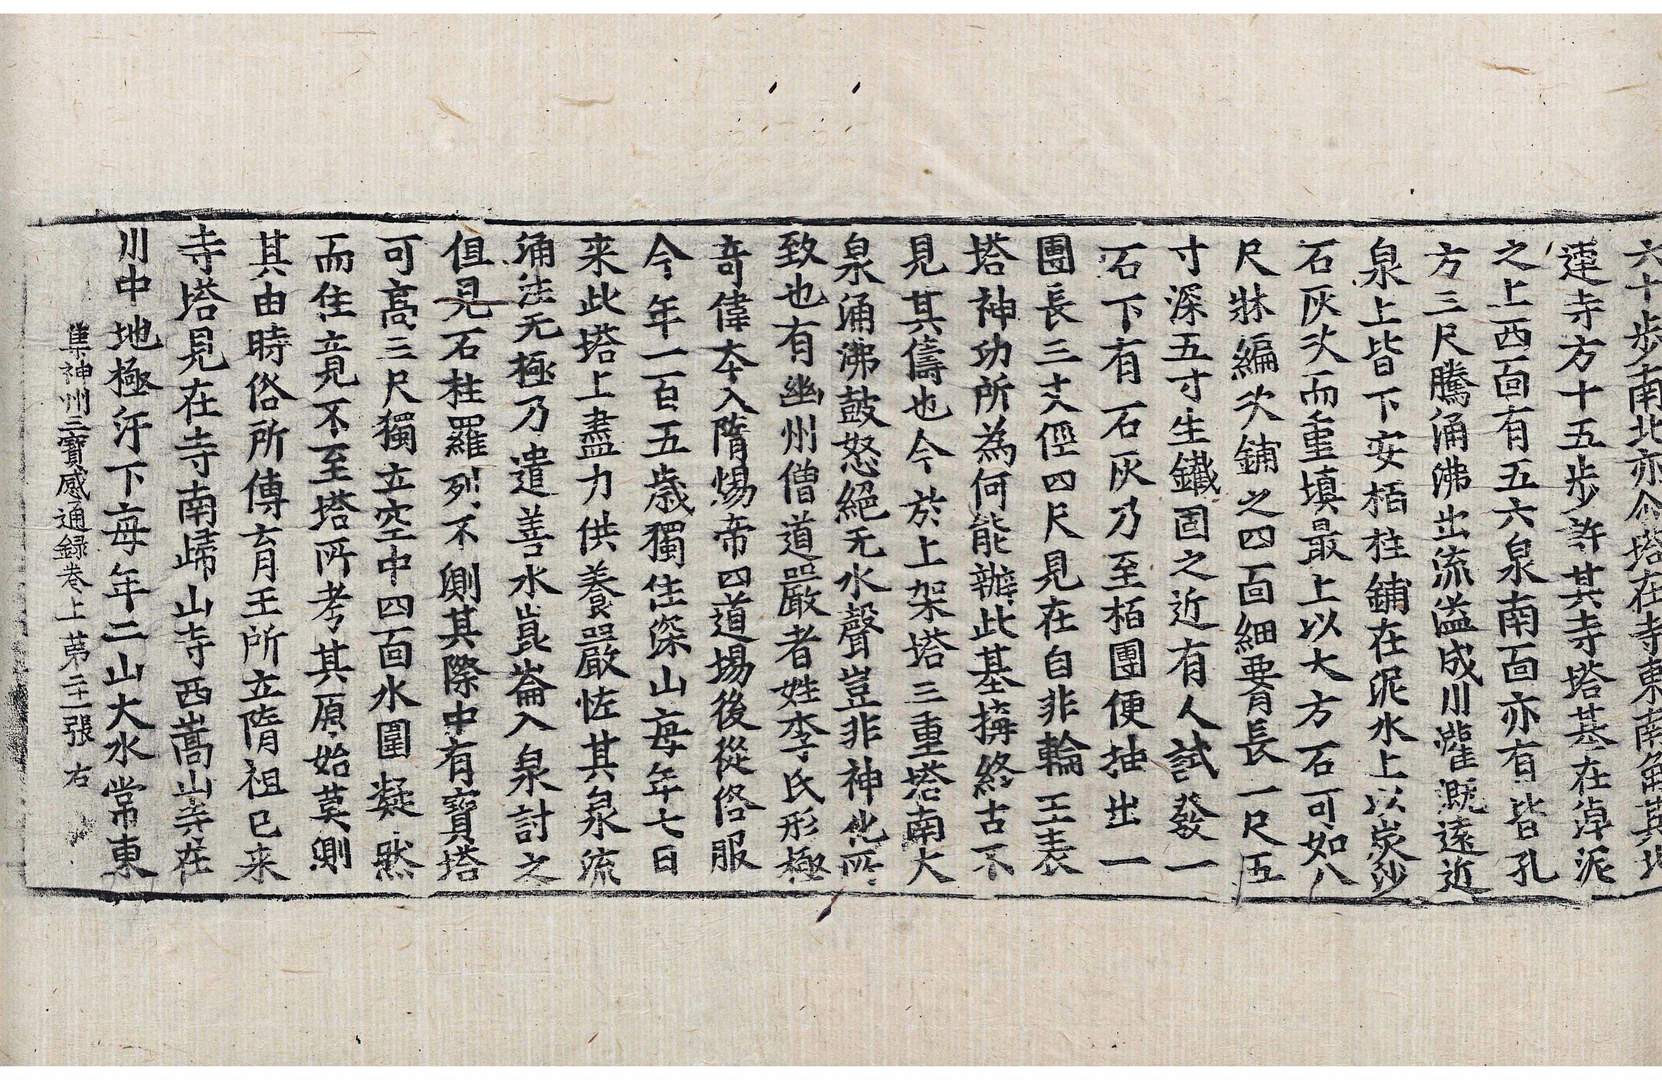 六十步南北亦尒塔在寺東南角其北
連寺方十五步許其寺塔基在淖泥
之上西面有五六泉南面亦有皆孔
方三尺騰涌沸出流溢成川灌溉遠近
泉上皆下安栢柱鋪在泥水上以炭沙
石灰次而重填最上以大方石可如八
尺牀編次鋪之四面細腰長一尺五
寸深五寸生鐵固之近有人試發一
石下有石灰乃至栢團便抽出一
團長三丈徑四尺見在自非輪王表
塔神功所為何能辦此基搆終古不
見其儔也今於上架塔三重塔南大
泉涌沸鼓怒絕无水聲豈非神化所
致也有幽州僧道嚴者姓李氏形極
奇偉本入隋煬帝四道場後從俗服
今年一百五歲獨住深山每年七日
来此塔上盡力供養嚴恠其泉流
涌注无極乃遣善水崑崙入泉討之
但見石柱羅列不測其際中有寶塔
可高三尺獨立空中四面水圍凝然
而住竟不至塔所考其原始莫測
其由時俗所傳育王所立隋祖已来
寺塔見在寺南歸山寺西嵩山寺在
川中地極汙下每年二山大水常東
集神州三寶感通録卷上 苐二十張 右